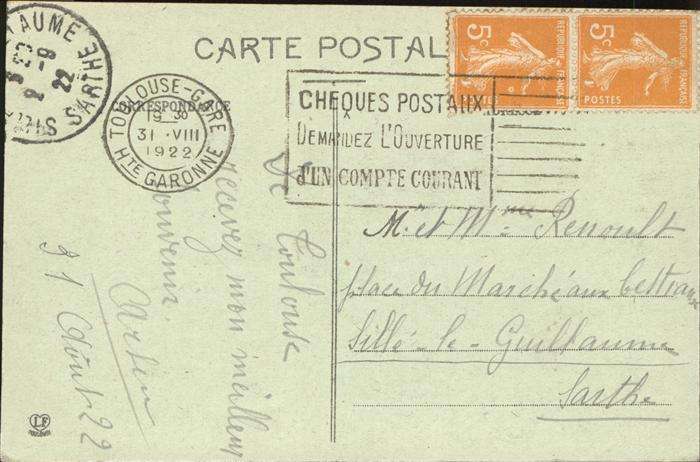 CARTE POSTALE
CORRESPONDANCE
ADRESSE
5c 5c
REPUBLIQUE FRANÇAISE
REPUBLIQUE FRANÇAISE
POSTES
AUME
SARTHE
22
TOULOUSE-GARE
19 30
31 · VIII
1922
HTE GARONNE
CHEQUES POSTAUX
DEMANDEZ L'OUVERTURE
D'UN COMPTE COURANT
De Toulouse
recevez mon meilleur
souvenir.
31 Août 22
M. et Mme Renoult
place du Marché aux bestiaux
Sillé-le-Guillaume
Sarthe